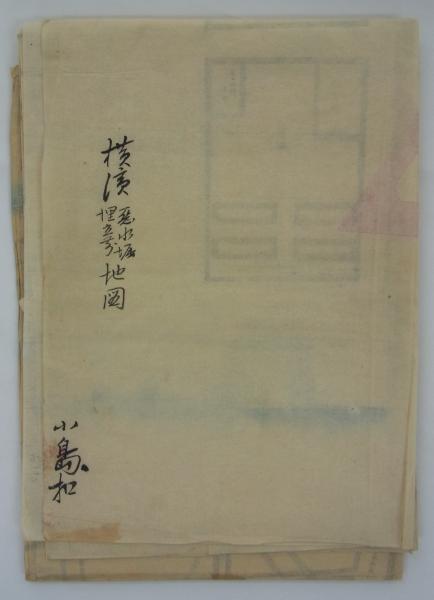 横濱
悪水堀
埋立
地図
小島扣